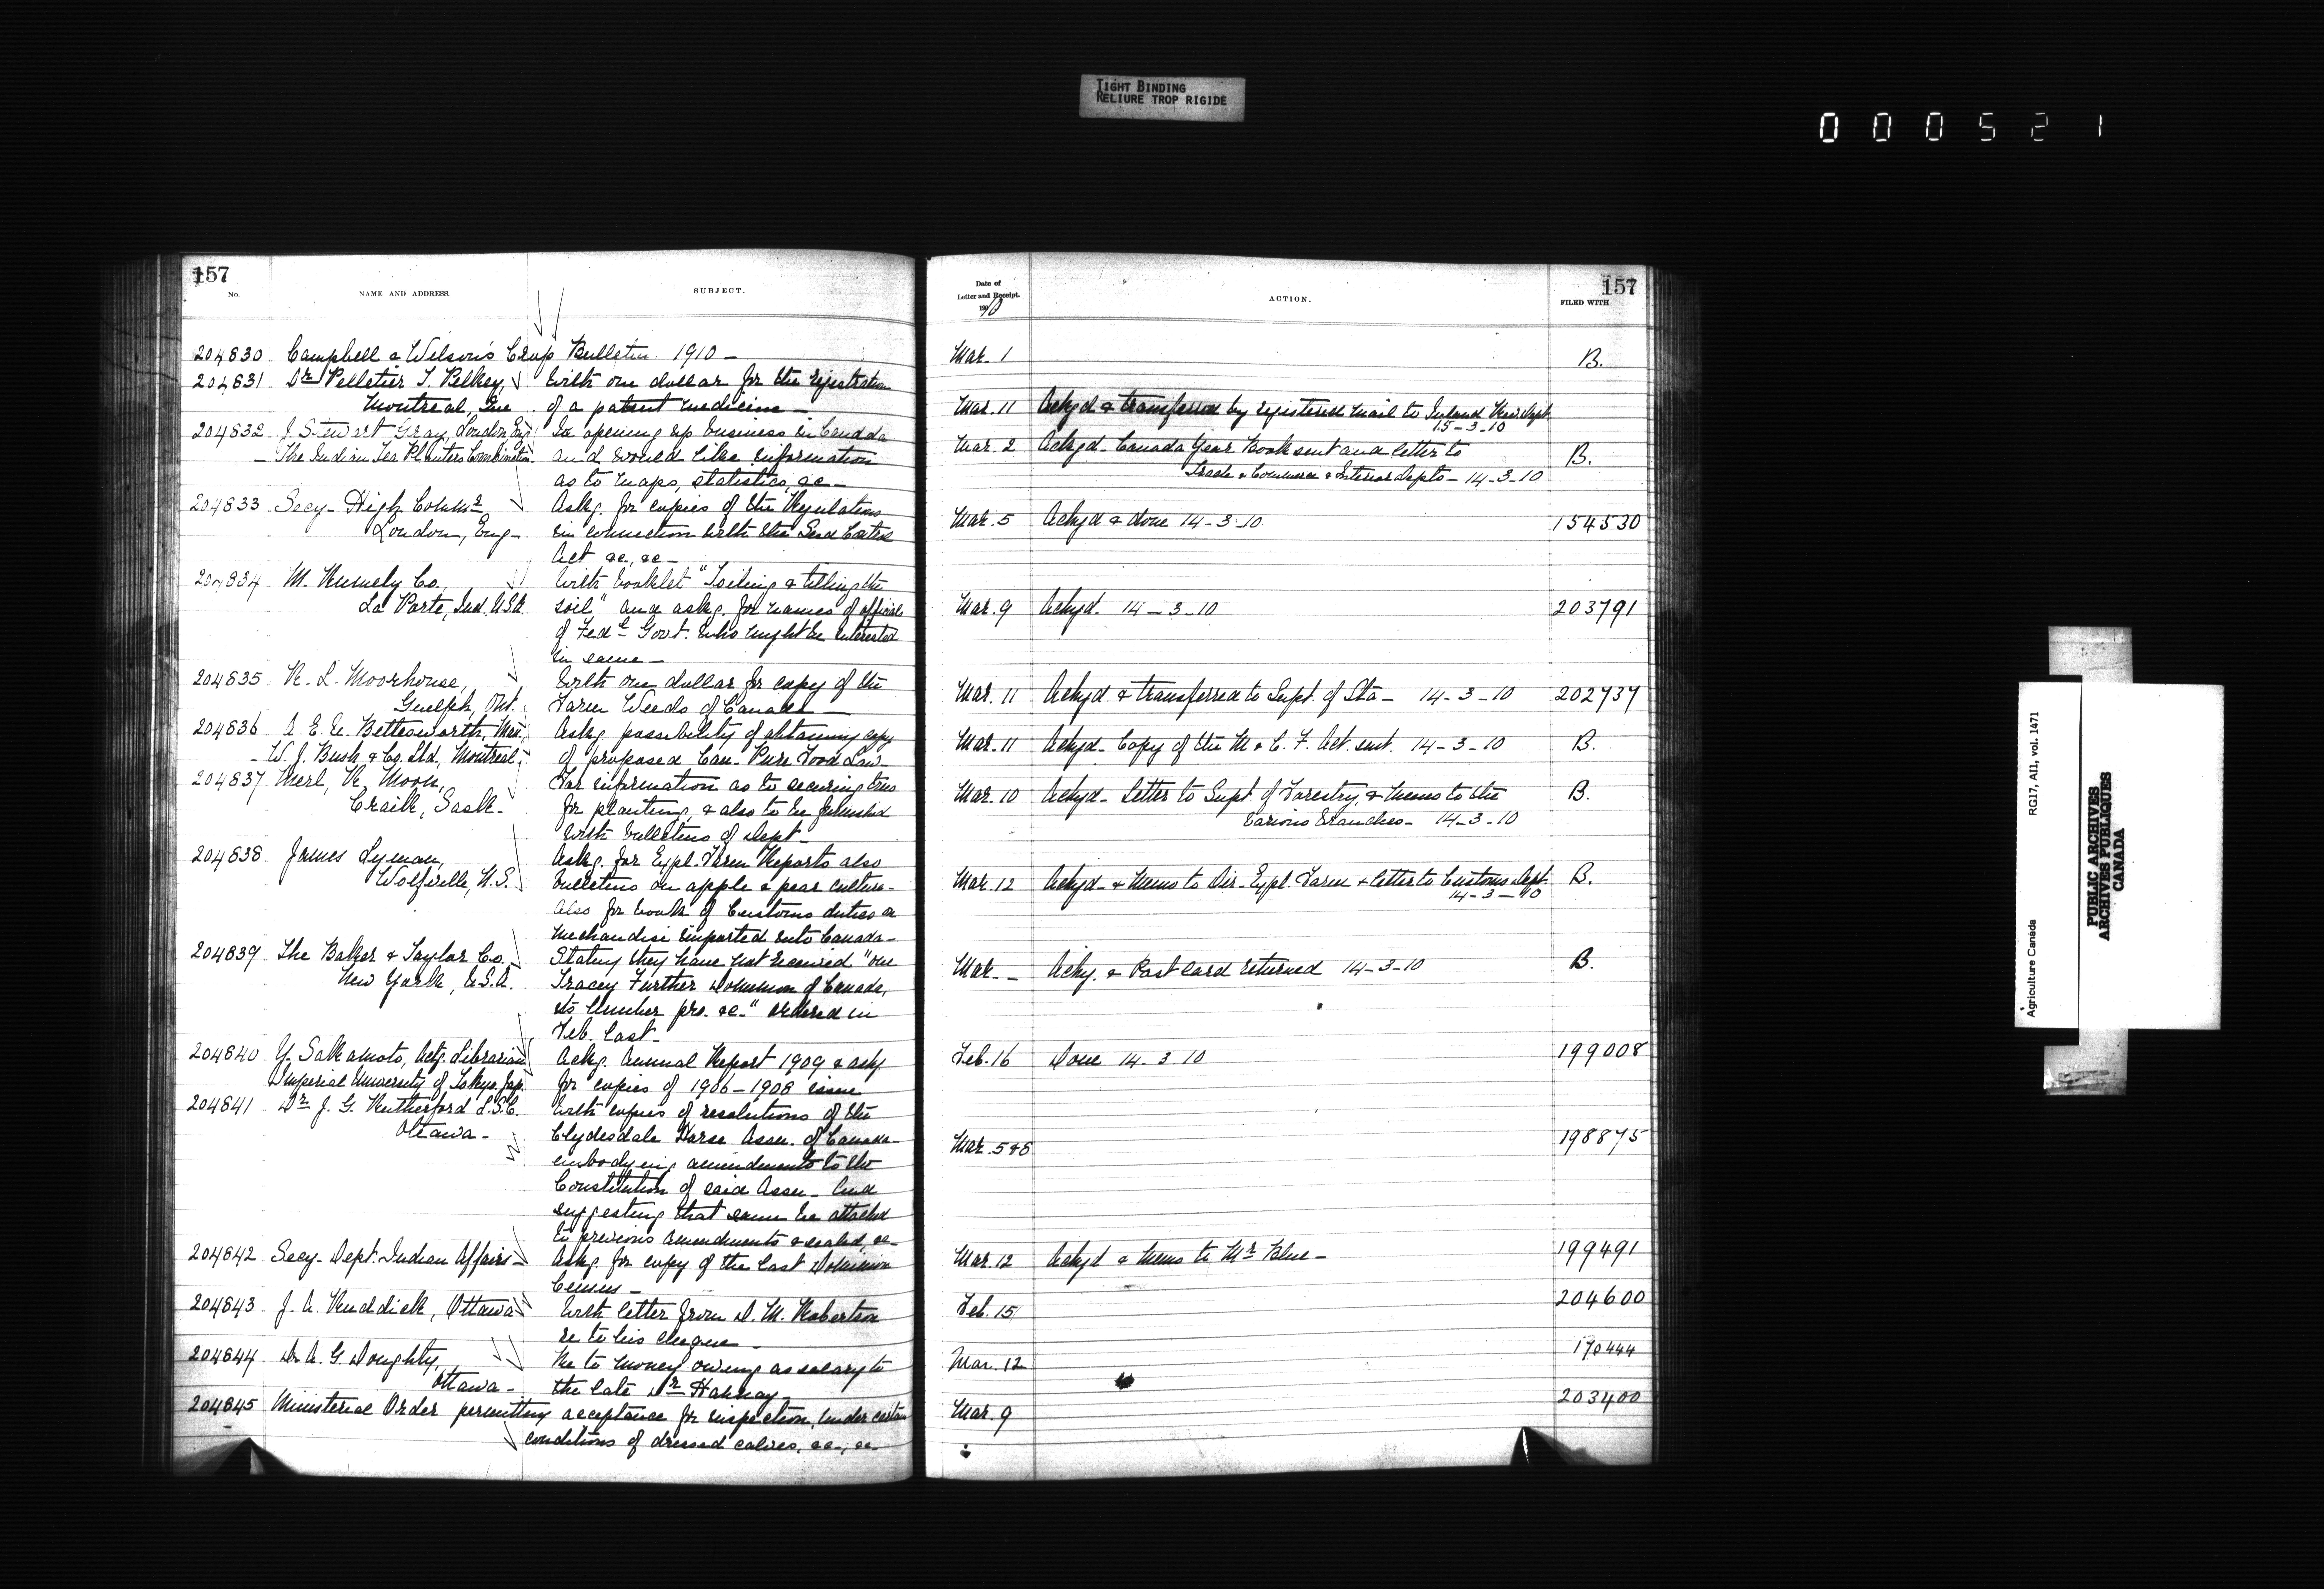 TIGHT BINDING
RELIURE TROP RIGIDE
000521
157
No.
NAME AND ADDRESS.
SUBJECT.
204830 Campbell & Wilson's Crop Bulletin 1910 –
204831 Dr Pelletier T. Pelkey, With one dollar for the registration
Montreal, Que of a patent medicine –
204832 J. Stewart Gray, London Eng In opening up business in Canada
– The Indian Tea Planters Combination and would like information
as to maps, statistics, &c –
204833 Secy – High Commr Askg. for copies of the Regulations
London, Eng – in connection with the Seed Control
Act &c., &c –
204834 M. Rumely Co., With booklet "Toiling & tilling the
La Porte, Ind. U.S.A. soil" and askg. for names of officials
of Fedl Govt. who might be interested
in same –
204835 R. L. Moorhouse, With one dollar for copy of the
Guelph, Ont. Farm Weeds of Canada –
204836 A. E. E. Bettesworth, Man. Askg. possibility of obtaining copy
– W. J. Bush & Co. Ltd., Montreal – of proposed Can – Pure Food Law –
204837 Merl, R. Moon, For information as to securing trees
Craik, Sask – for planting, & also to be furnished
with bulletins of Dept –
204838 James Lyman, Askg. for Expl. Farm Reports also
Wolfville, N.S. bulletins on apple & pear culture –
also for book of Customs duties on
mechandise imported into Canada –
204839 The Baker & Taylor Co. – Stating they have not received "one
New York, U.S.A. Tracey Further Dominion of Canada,
its lumber pro. &c." ordered in
Feb. last –
204840 Y. Sakamoto, Actg. Librarian Ackg. Annual Report 1909 & askg
Imperial University of Tokyo, Jap. for copies of 1906 – 1908 issue
204841 Dr J. G. Rutherford L.S.C. With copies of resolutions of the
Ottawa – Clydesdale Horse Assn. of Canada –
embodying amendments to the
Constitution of said Assn – And
suggesting that same be attached
to previous Amendments & sealed, &c –
204842 Secy – Dept. Indian Affairs – Askg. for copy of the last Dominion
Census –
204843 J. A. Ruddick, Ottawa With letter from D. M. Robertson
re to his cheque –
204844 Dr A. G. Doughty, Re to money owing as salary to
Ottawa – the late Dr Hannay –
204845 Ministerial Order permitting acceptance for inspection, under certain
conditions of dressed calves, &c –, &c
Date of
Letter and Receipt.
1910
ACTION.
157
FILED WITH
Mar. 1 B.
Mar. 11 Ackgd & transferred by registered mail to Inland Rev. Dept.
15 – 3 – 10
Mar. 2 Ackgd – Canada Year Book sent and letter to B.
Trade & Commerce & Interior Depts – 14 – 3 – 10
Mar. 5 Ackgd & done 14 – 3 – 10 154530
Mar. 9 Ackgd. 14 – 3 – 10 203791
Mar. 11 Ackgd & transferred to Supt. of Sta – 14 – 3 – 10 202737
Mar. 11 Ackgd – Copy of the M & C. F. Act. sent. 14 – 3 – 10 B.
Mar. 10 Ackgd – Letter to Supt. of Forestry, & memo to the B.
various branches – 14 – 3 – 10
Mar. 12 Ackgd – & Memo to Dir – Expl. Farm & letter to Customs Dept. B.
14 – 3 – 10
Mar – – Ackg. & Post card returned 14 – 3 – 10 B.
Feb. 16 Done 14 . 3 . 10 199008
Mar. 5 & 8 198875
Mar. 12 Ackgd & Memo to Mr Blue – 199491
Feb. 15 204600
Mar. 12 170444
Mar. 9 203400
Agriculture Canada RG17, AII, vol. 1471
PUBLIC ARCHIVES
ARCHIVES PUBLIQUES
CANADA